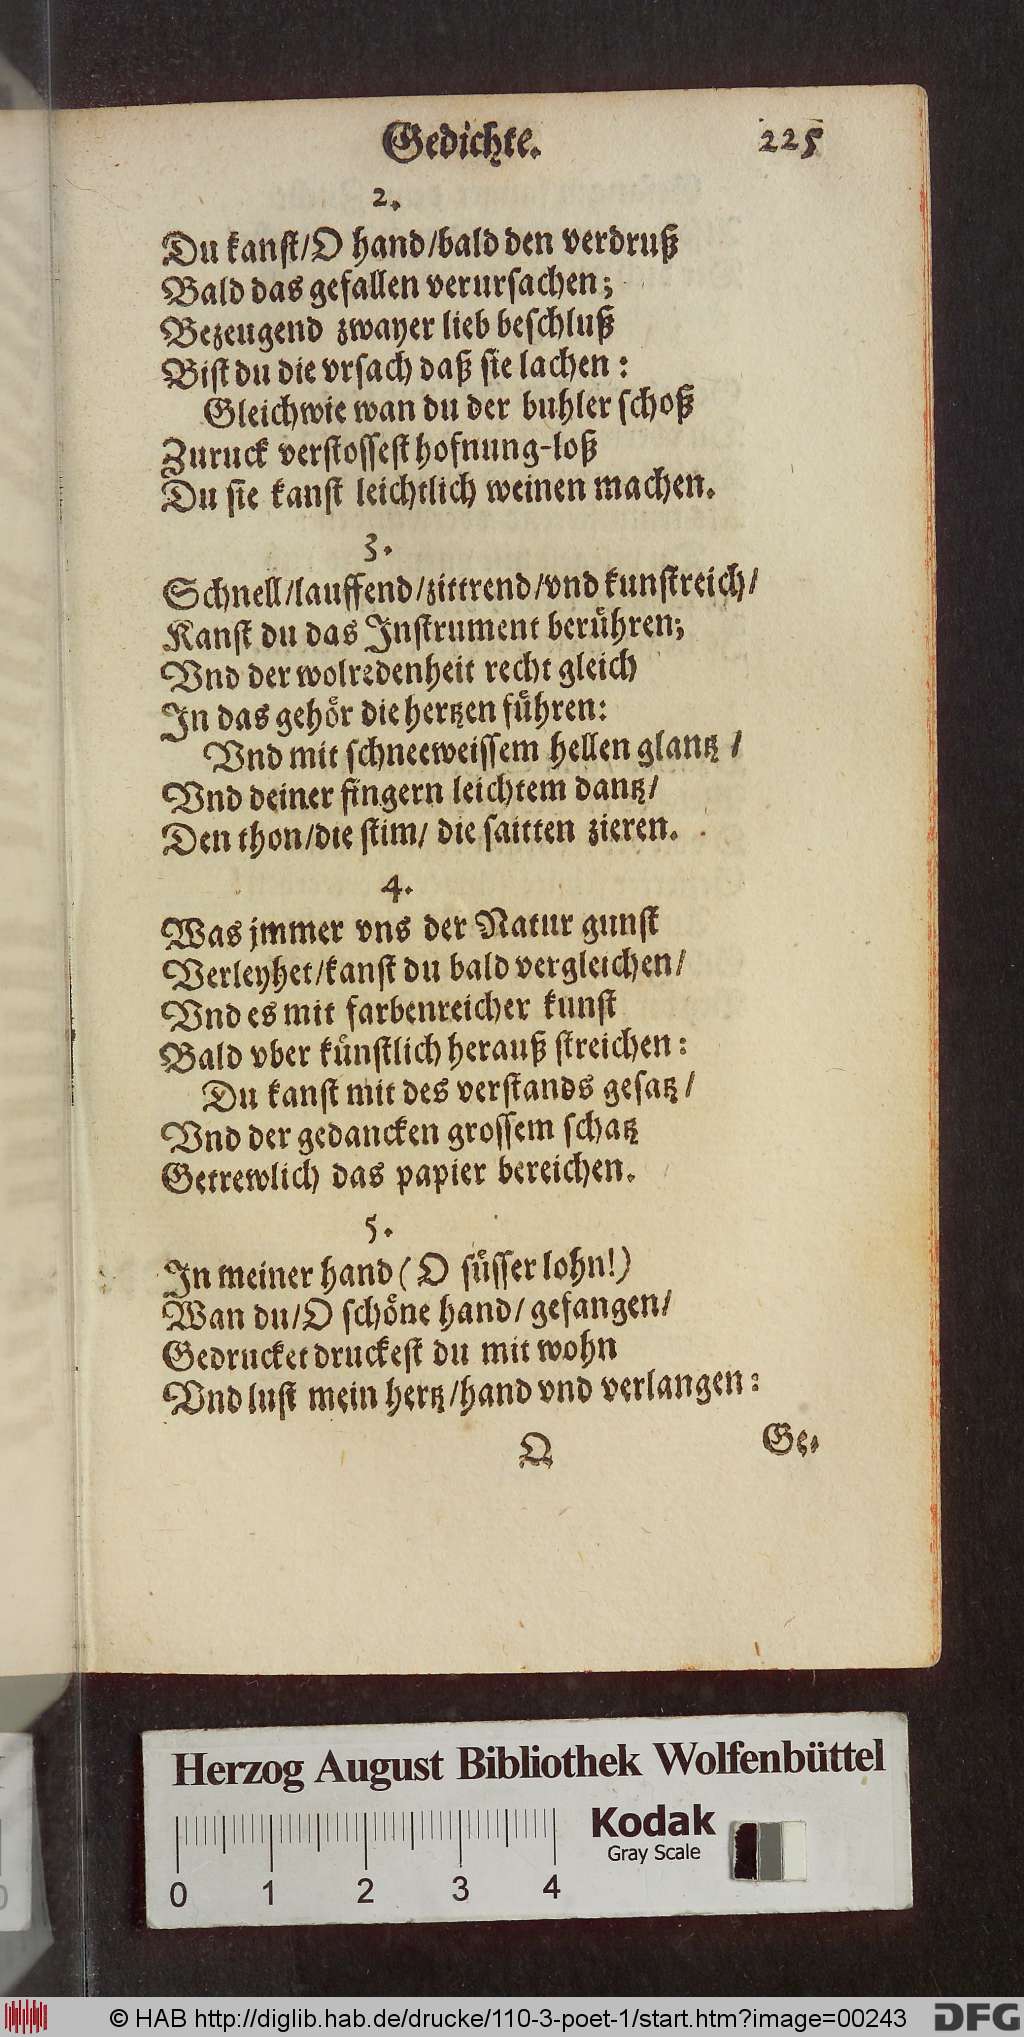 Gedichte. 225
2.
Du kanst/O hand/bald den verdruß
Bald das gefallen verursachen;
Bezeugend zwayer lieb beschluß
Bist du die vrsach daß sie lachen:
Gleichwie wan du der buhler schoß
Zuruck verstossest hofnung-loß
Du sie kanst leichtlich weinen machen.
3.
Schnell/lauffend/zittrend/vnd kunstreich/
Kanst du das Instrument berühren;
Vnd der wolredenheit recht gleich
In das gehör die hertzen führen:
Vnd mit schneeweissem hellen glantz/
Vnd deiner fingern leichtem dantz/
Den thon/die stim/ die saitten zieren.
4.
Was jmmer vns der Natur gunst
Verleyhet/kanst du bald vergleichen/
Vnd es mit farbenreicher kunst
Bald vber künstlich herauß streichen:
Du kanst mit des verstands gesatz/
Vnd der gedancken grossem schatz
Getrewlich das papier bereichen.
5.
In meiner hand (O süsser lohn!)
Wan du/O schöne hand/ gefangen/
Gedrucket druckest du mit wohn
Vnd lust mein hertz/hand vnd verlangen:
Q Ge-
Herzog August Bibliothek Wolfenbüttel
Kodak
Gray Scale
0 1 2 3 4
© HAB http://diglib.hab.de/drucke/110-3-poet-1/start.htm?image=00243 DFG